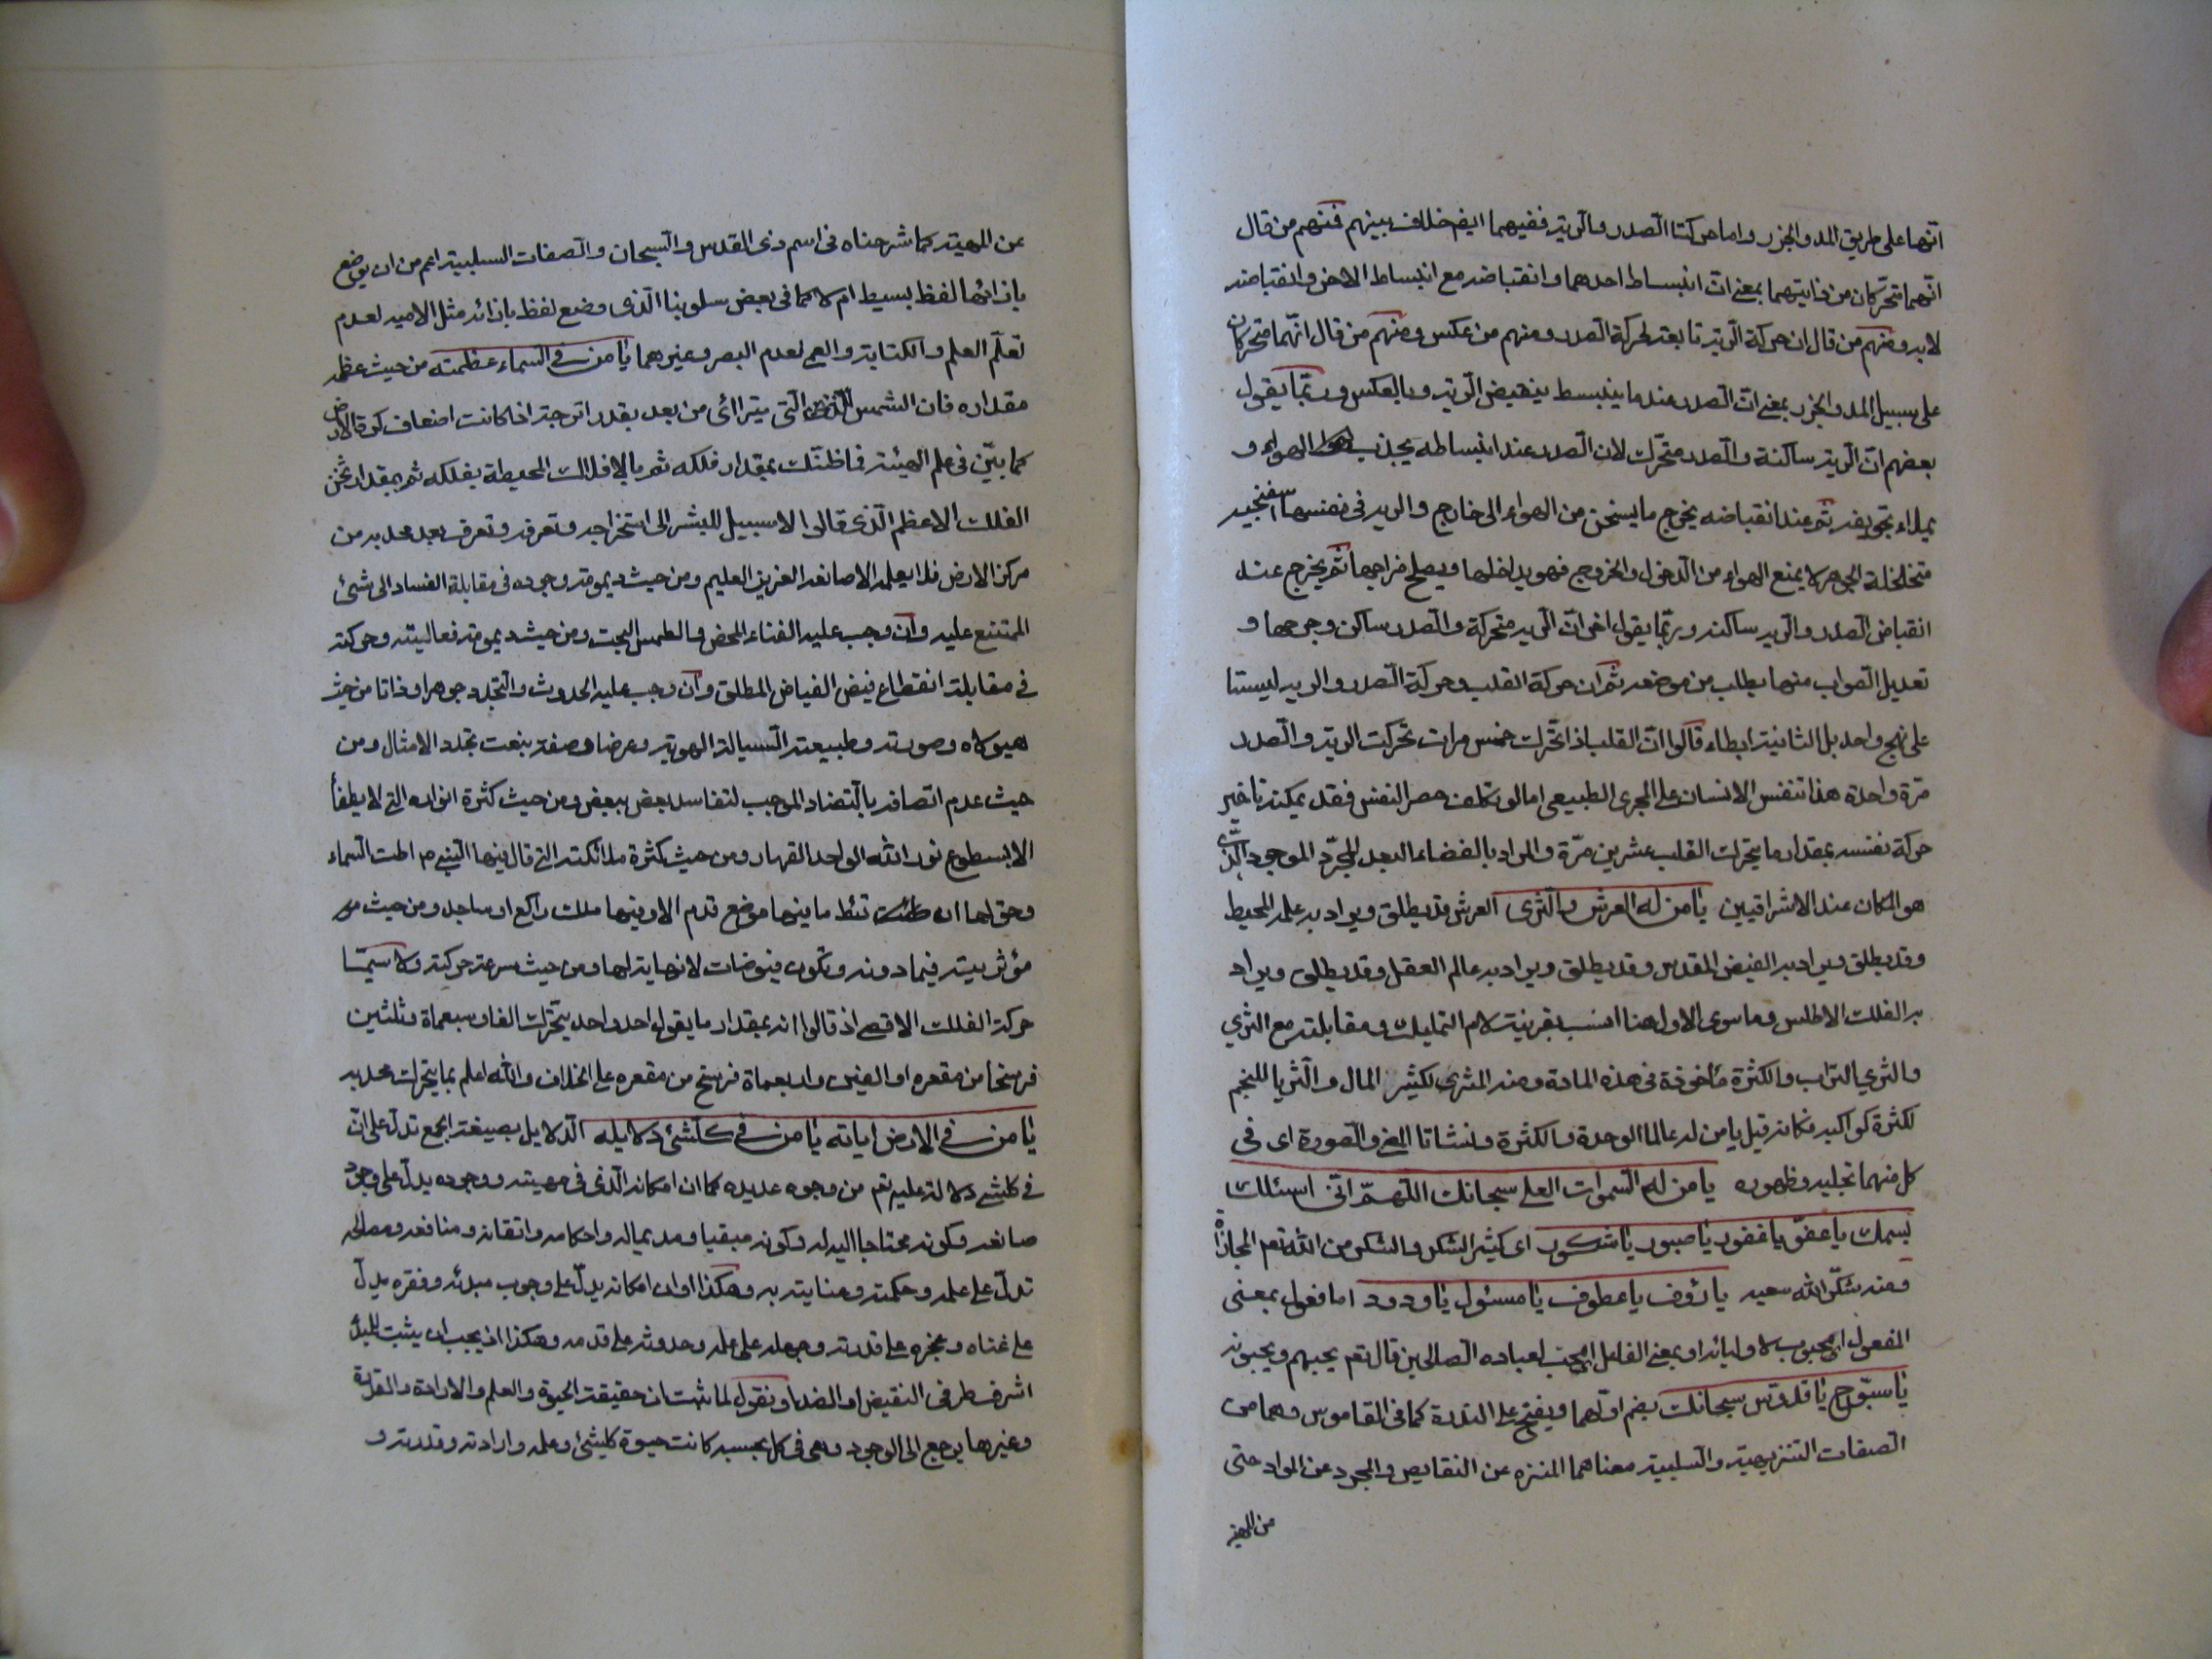 انّها على طريق المد والجزر واما حركتا الصدر والريه ففيهما ايض خلاف بينهم فمنهم من قال
انّهما متحرّكان من ذاتيهما بمعنى انّ انبساط احدهما وانقباضه مع انبساط الاخر وانقباضه
لا به ومنهم من قال ان حركة الريه تابعة لحركة الصدر ومنهم من عكس ومنهم من قال انّهما متحركان
على سبيل المد والجزر بمعنى انّ الصدر عندما ينبسط ينقبض الريه وبالعكس وربّما يقول
بعضهم انّ الريه ساكنة والصدر متحرّك لان الصدر عند انبساطه يجذب الهواء و
يملاء تجويفه ثم عند انقباضه يخرج ما يسخن من الهواء الى خارج والريه في نفسها اسفنجيه
متخلخلة الجوهر لا يمنع الهواء من الدخول والخروج فهو يداخلها ويصلح مزاجها ثم يخرج عند
انقباض الصدر والريه ساكنه وربّما يقول اخر انّ الريه متحركة والصدر ساكن وجرحها و
تعديل الصواب منها يطلب من موضعه ثم ان حركة القلب وحركة الصدر والريه ليستا
على نهج واحد بل الثانية ابطاء قالوا انّ القلب اذا تحرّك خمس مرات تحركت الريه والصدر
مرّة واحدة هذا تنفس الانسان على المجرى الطبيعى اما لو تكلف حصر النفس فقد يمكنه تاخير
حركة نفسه بمقدار ما يتحرك القلب عشرين مرّة والمراد بالفضاء البعد المجرّد الموجود الذى
هو المكان عند الاشراقيين يا من له العرش والثرى العرش قد يطلق ويراد به علمه المحيط
وقد يطلق ويراد به الفيض المقدس وقد يطلق ويراد به عالم العقل وقد يطلق ويراد
به الفلك الاطلس وما سوى الاول هنا انسب بقرينة لام التمليك ومقابلته مع الثرى
والثرى التراب والكثرة مأخوذة في هذه المادة ومنه المثرى لكثير المال والثريا للنجم
لكثرة كواكبه فكانه قيل يا من له عالما الوحدة والكثرة ونشاتا المعنى والصورة اى فى
كل منهما تجليه وظهوره يا من له السموات العلى سبحانك اللهمّ انّى اسئلك
بسمك يا عفوّ يا غفور يا صبور يا شكور اى كثير الشكر والشكر من الله تعم المجازاة
ومنه شكّر الله سعيه يا رؤف يا عطوف يا مسئول يا ودود اما فعول بمعنى
المفعول اى محبوب لاوليائه او بمعنى الفاعل اى محبّ لعباده الصالحين قال تعم يحبهم ويحبونه
يا سبّوح يا قدّوس سبحانك بضم اوّلهما ويفتح على الندرة كما فى القاموس وهما من
الصفات التنزيهيه والسلبيه معناهما المنزه عن النقايص والمجرد عن المواد حتى
عن المهيه
عن المهيته كما شرحناه فى اسم ذى القدس والسبحان والصفات السلبية اعم من ان يوضع
بازائها لفظ بسيط ام لا كما فى بعض سلوبنا الذى وضع لفظ بازائه مثل الامية لعدم
تعلّم العلم والكتابة والعمى لعدم البصر وغيرهما يا من فى السماء عظمته من حيث عظم
مقداره فان الشمس التى يتراائى من بعد بقدر اترجة اذا كانت اضعاف كرة الارض
كما بيّن فى علم الهيئة فما ظنّك بمقدار فلكه ثم بالافلاك المحيطة بفلكه ثم بمقدار ثخن
الفلك الاعظم الذى قالوا لا سبيل للبشر الى استخراجه وتعرفه وتعرف بعد محدبه من
مركز الارض فلا يعلمه الا صانعه العزيز العليم ومن حيث ديمومة وجوده فى مقابلة الفساد الى شئ
الممتنع عليه وان وجب عليه الفناء المحض والطمس البحت ومن حيث ديمومة فعاليته وحركته
فى مقابلة انقطاع فيض الفياض المطلق وان وجب عليه الحدوث والتجدد جوهرا وذاتا من حيث
هيولاه وصورته وطبيعته السيالة الهوية وعرضا وصفة بنعت تجدد الامثال ومن
حيث عدم اتصافه بالتضاد الموجب لتفاسد بعض ببعض ومن حيث كثرة انواره التى لا يطفأ
الا بسطوع نور الله الواحد القهار ومن حيث كثرة ملائكته التى قال فيها النبى ص اطت السماء
وحق لها ان تئط ما فيها موضع قدم الا وفيها ملك راكع او ساجد ومن حيث
مؤثريته فيما دونه وتكون فيوضات لا نهاية لها ومن حيث سرعة حركته ولا سيّما
حركة الفلك الاقصى اذ قالوا انه بمقدار ما يقول احد واحد يتحرّك الفا وسبعمأة وثلثين
فرسخا من مقعره او الفين واربعمأة فرسخ من مقعره على الخلاف والله اعلم بما يتحرك محدبه
يا من فى الارض اياته يا من فى كلّشئ دلايله الدلايل بصيغة الجمع تدلّ على انّ
فى كلشئ دلالة عليه تعم من وجوه عديده كما ان امكانه الذى فى مهيته ووجوده يدلّ على وجود
صانعه وكونه محتاجا اليه وكونه مبقيا ومديما له واحكامه واتقانه ومنافعه ومصالحه
تدلّ على علمه وحكمته وعنايته به وهكذا او ان امكانه يدلّ على وجوب مبدئه وفقره يدلّ
على غناه وعجزه على قدرته وجهله على علمه وحدوثه على قدمه وهكذا اذ يجب ان يثبت للمبدأ
اشرف طرفى النقيض او الضد او نقول لما ثبت ان حقيقة الحيوة والعلم والارادة والقدرة
وغيرها يرجع الى الوجود وهى فى كل بحسبه كانت حيوة كلشئ وعلمه وارادته وقدرته و